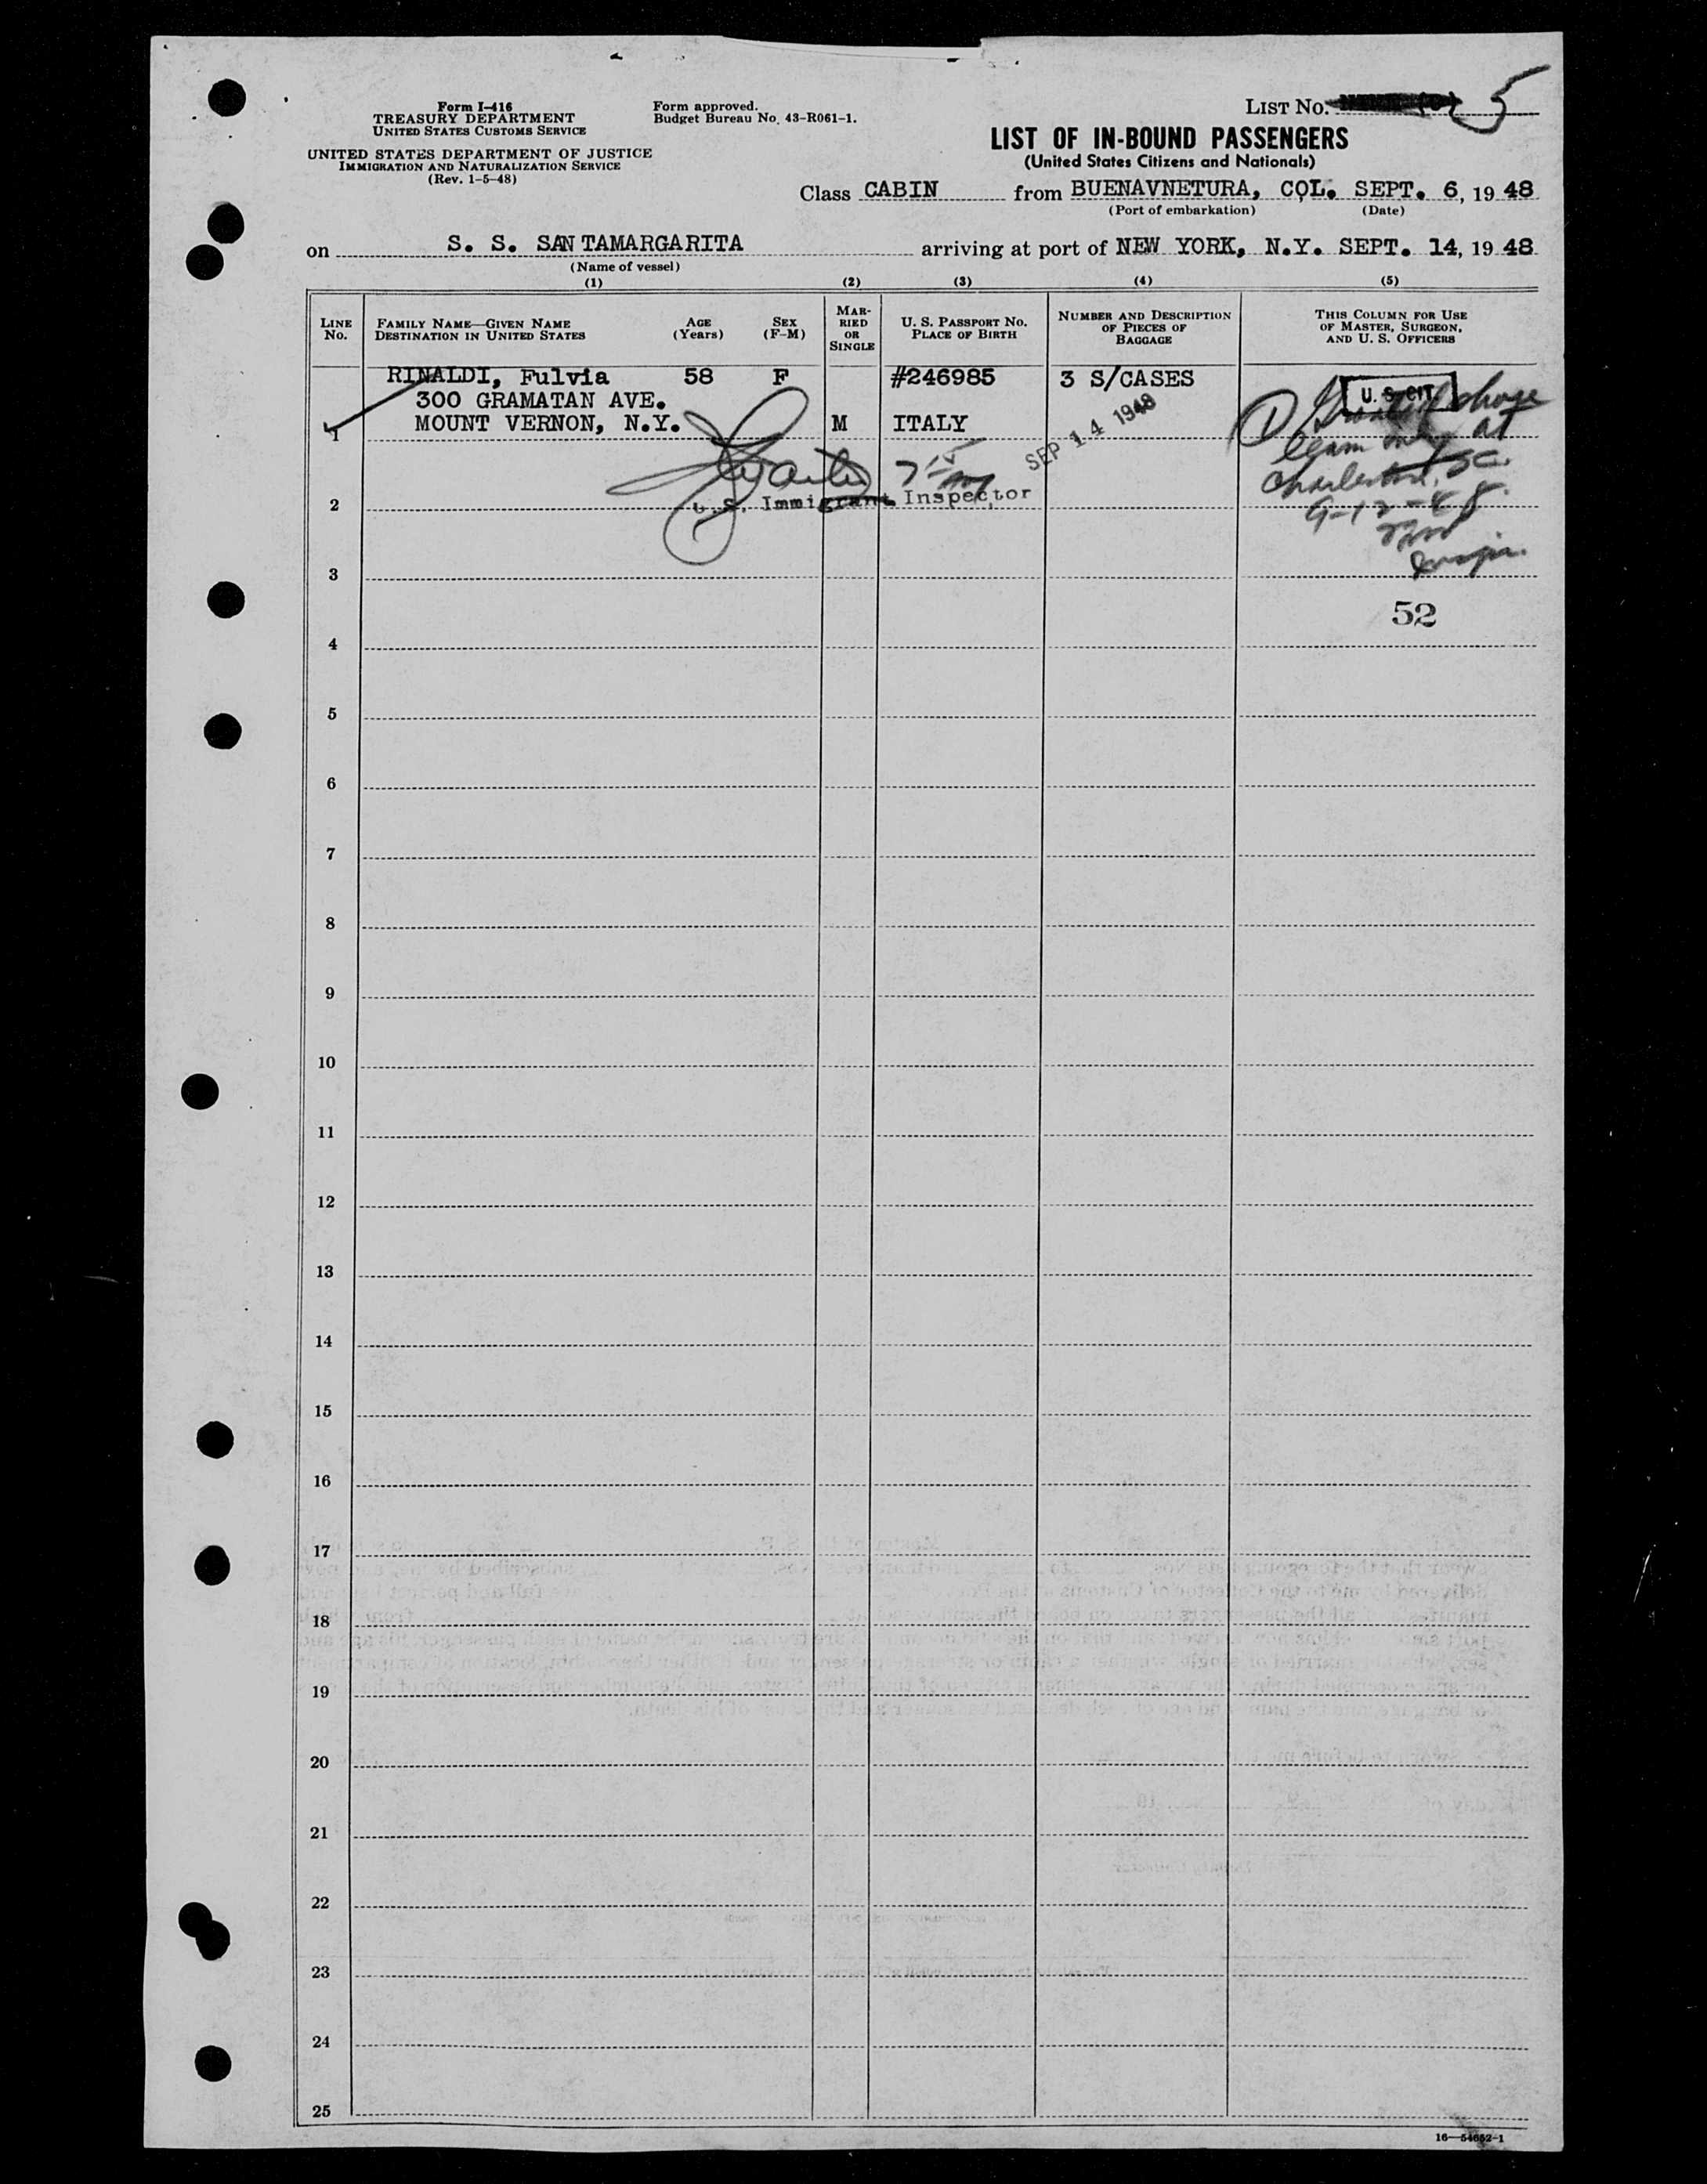 Form I-416
TREASURY DEPARTMENT
UNITED STATES CUSTOMS SERVICE
UNITED STATES DEPARTMENT OF JUSTICE
IMMIGRATION AND NATURALIZATION SERVICE
(Rev. 1-5-48)
Form approved.
Budget Bureau No. 43-R061-1.
LIST NO. 5
LIST OF IN-BOUND PASSENGERS
(United States Citizens and Nationals)
Class CABIN from BUENAVNETURA, COL. SEPT. 6, 19 48
(Port of embarkation) (Date)
on S. S. SANTAMARGARITA arriving at port of NEW YORK, N.Y. SEPT. 14, 19 48
(Name of vessel)
(1) (2) (3) (4) (5)
LINE No. FAMILY NAME—GIVEN NAME DESTINATION IN UNITED STATES AGE (Years) SEX (F-M) MARRIED OR SINGLE U. S. PASSPORT NO. PLACE OF BIRTH NUMBER AND DESCRIPTION OF PIECES OF BAGGAGE THIS COLUMN FOR USE OF MASTER, SURGEON, AND U. S. OFFICERS
RINALDI, Fulvia 58 F #246985 3 S/CASES U. S. CIT
300 GRAMATAN AVE.
1 MOUNT VERNON, N.Y. M ITALY SEP 14 1948
at
Charleston, SC.
9-12-48
U.S. Immigrant Inspector
2
3
52
4
5
6
7
8
9
10
11
12
13
14
15
16
17
18
19
20
21
22
23
24
25
16—54652-1